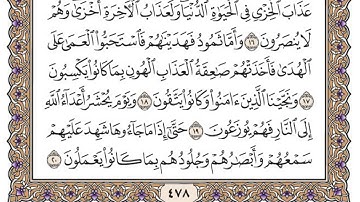 عَذَابَ ٱلْخِزْىِ فِى ٱلْحَيَوٰةِ ٱلدُّنْيَا وَلَعَذَابُ ٱلْأَخِرَةِ أَخْزَىٰ وَهُمْ
لَا يُنصَرُونَ ١٦ وَأَمَّا ثَمُودُ فَهَدَيْنَٰهُمْ فَٱسْتَحَبُّوا۟ ٱلْعَمَىٰ عَلَى
ٱلْهُدَىٰ فَأَخَذَتْهُمْ صَٰعِقَةُ ٱلْعَذَابِ ٱلْهُونِ بِمَا كَانُوا۟ يَكْسِبُونَ
١٧ وَنَجَّيْنَا ٱلَّذِينَ ءَامَنُوا۟ وَكَانُوا۟ يَتَّقُونَ ١٨ وَيَوْمَ يُحْشَرُ أَعْدَآءُ ٱللَّهِ
إِلَى ٱلنَّارِ فَهُمْ يُوزَعُونَ ١٩ حَتَّىٰٓ إِذَا مَا جَآءُوهَا شَهِدَ عَلَيْهِمْ
سَمْعُهُمْ وَأَبْصَٰرُهُمْ وَجُلُودُهُم بِمَا كَانُوا۟ يَعْمَلُونَ ٢٠
٤٧٨